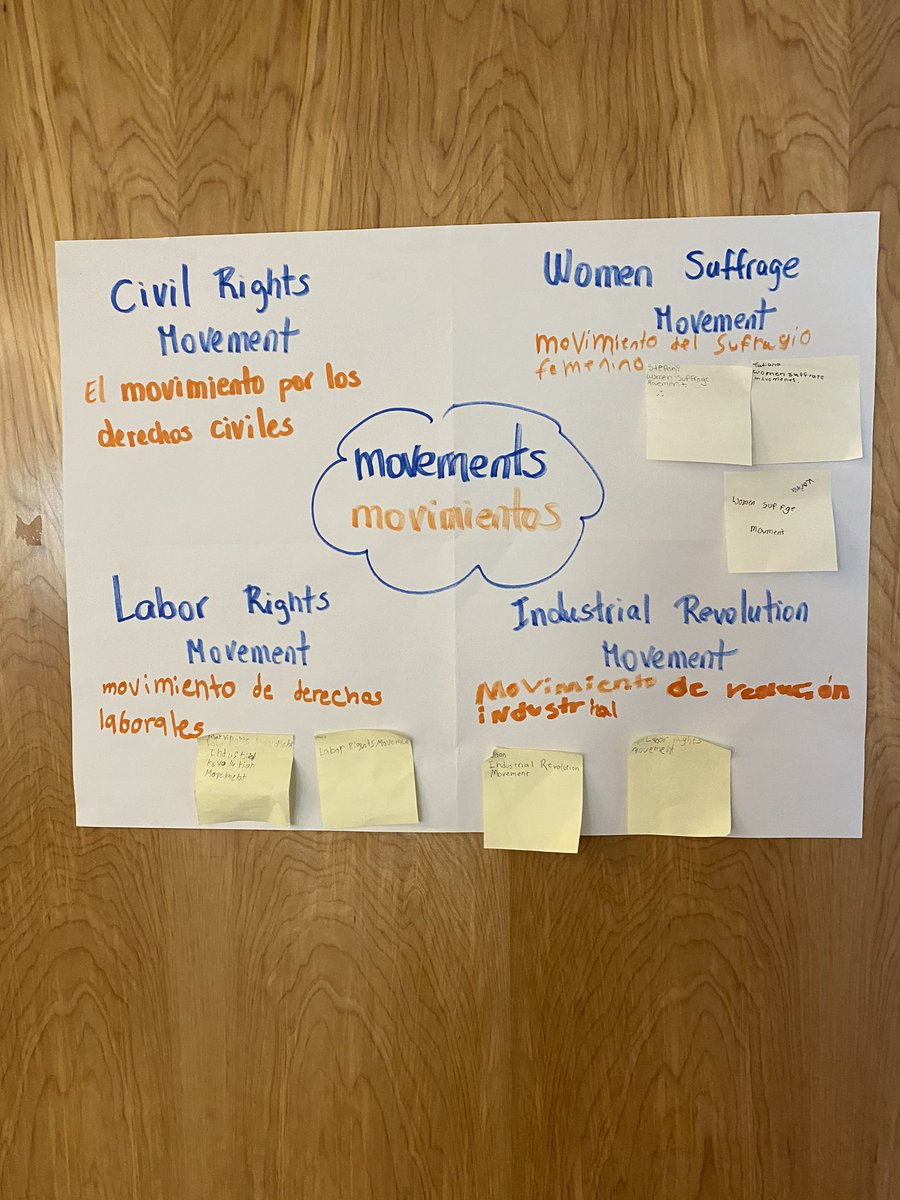 Civil Rights
Movement
El movimiento por los
derechos civiles
Women Suffrage
Movement
movimiento del sufragio
femenino
Stepany
Women Suffrage
Movement
Tatiana
Women suffrate
movements.
Women Sufrge
Moument
movements
movimientos
Labor Rights
Movement
movimiento de derechas
laborales
Industrial
revolution
Movement
Labor Rights Movement
Industrial Revolution
Movement
Movimiento de reolución
industrial
Industrial Revolution
Movement
Labor Rights
Movement